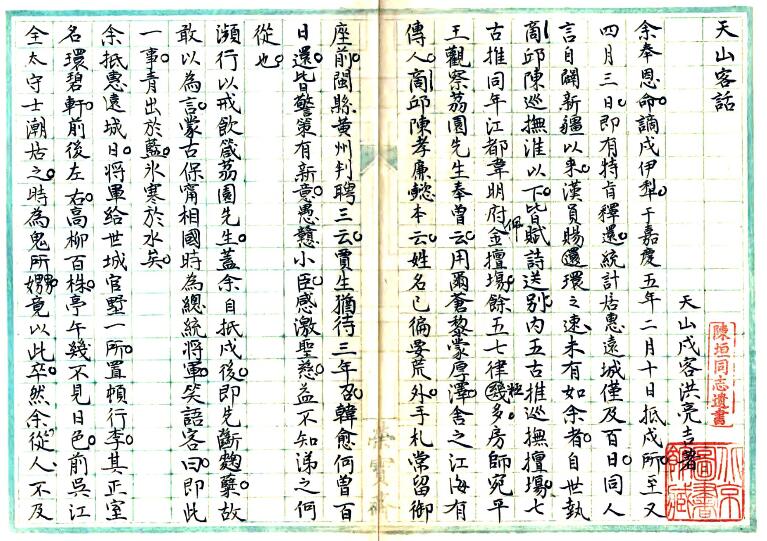 天山客話
天山戍客洪亮吉著
余奉恩命謫戍伊犁于嘉慶五年二月十日抵戍所至又
四月三日即有特旨釋還統計居惠遠城僅及百日同人
言自闢新疆以來漢員賜還環之速未有如余者自世執
商邱陳巡撫淮以下皆賦詩送別內五古推巡撫擅場七
古推同年江都韋明府佩金擅場餘五七律極多房師宛平
王觀察荔園先生奉曾云用爾蒼黎蒙厚澤舍之江海有
傳人商邱陳孝廉懿本云姓名已徧要荒外手札常留御
座前閩縣黃州判聘三云賈生猶待三年召韓愈何曾百
日還皆警策有新意愚戆小臣感激聖慈益不知涕之何
從也
瀕行以戒飲箴荔園先生蓋余自抵戍後即先斷麴糵故
敢以為言蒙古保甯相國時為總統將軍笑語客曰即此
一事青出於藍冰寒於水矣
余抵惠遠城日將軍給世城官墅一所置頓行李其正室
名環碧軒前後左右高柳百株亭午幾不見日色前吳江
全太守士潮姑之時為鬼所嬲竟以此卒然余從人不及
陳垣同志遺書
北京圖書館藏